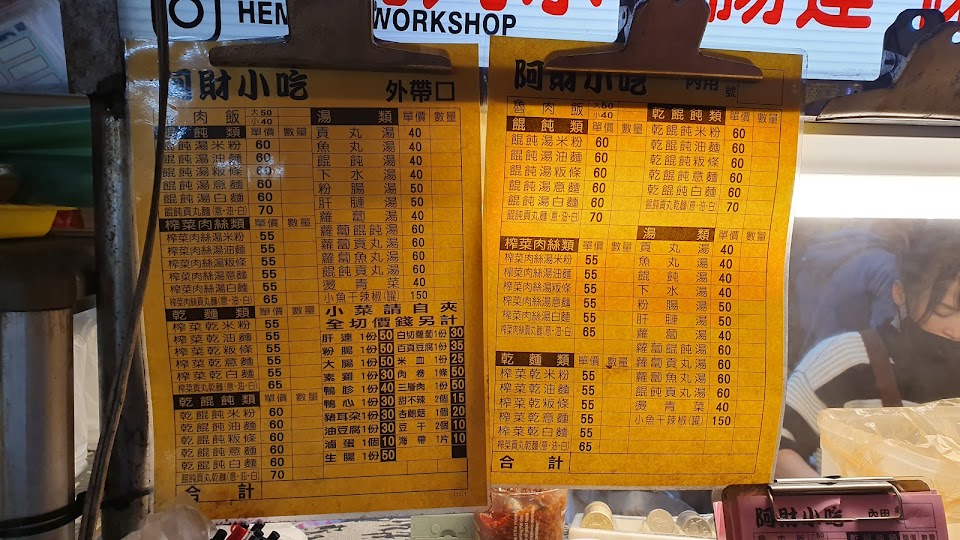 WORKSHOP
阿財小吃 外帶口
肉飯 大50 小40
飩類 單價 數量
餛飩湯米粉 60
餛飩湯油麵 60
餛飩湯粄條 60
餛飩湯意麵 60
餛飩湯白麵 60
餛飩貢丸麵(意·油·白) 70
榨菜肉絲類 單價 數量
榨菜肉絲湯米粉 55
榨菜肉絲湯油麵 55
榨菜肉絲湯粄條 55
榨菜肉絲湯意麵 55
榨菜肉絲湯白麵 55
榨菜肉絲貢丸麵(意·油·白) 65
乾麵類 單價 數量
榨菜乾米粉 55
榨菜乾油麵 55
榨菜乾粄條 55
榨菜乾意麵 55
榨菜乾白麵 55
榨菜貢丸乾麵(意·油·白) 65
乾餛飩類 單價 數量
乾餛飩米粉 60
乾餛飩油麵 60
乾餛飩粄條 60
乾餛飩意麵 60
乾餛飩白麵 60
餛飩貢丸乾麵(意·油·白) 70
合計
湯類 單價 數量
貢丸湯 40
魚丸湯 40
餛飩湯 40
下水湯 40
粉腸湯 50
肝腱湯 50
蘿蔔湯 40
蘿蔔餛飩湯 60
蘿蔔貢丸湯 60
蘿蔔魚丸湯 60
餛飩貢丸湯 60
燙青菜 40
小魚干辣椒(罐) 150
小菜請自夾
全切價錢另計
肝連 1份 50 白切蘿蔔1份 30
粉腸 1份 50 百頁豆腐1份 35
大腸 1份 50 米血 1份 25
素雞 1份 30 肉卷 1條 50
鴨胗 1份 40 三層肉 1份 50
鴨心 1份 30 甜不辣 2個 15
豬耳朵1份 30 杏鮑菇 1個 20
油豆腐1份 30 豆干 2個 10
滷蛋 1個 10 海帶 1片 10
生腸 1份 50
阿財小吃 內用 號
魯肉飯 大50 小40
餛飩類 單價 數量
餛飩湯米粉 60
餛飩湯油麵 60
餛飩湯粄條 60
餛飩湯意麵 60
餛飩湯白麵 60
餛飩貢丸麵(意·油·白) 70
榨菜肉絲類 單價 數量
榨菜肉絲湯米粉 55
榨菜肉絲湯油麵 55
榨菜肉絲湯粄條 55
榨菜肉絲湯意麵 55
榨菜肉絲湯白麵 55
榨菜肉絲貢丸麵(意·油·白) 65
乾麵類 單價 數量
榨菜乾米粉 55
榨菜乾油麵 55
榨菜乾粄條 55
榨菜乾意麵 55
榨菜乾白麵 55
榨菜貢丸乾麵(意·油·白) 65
合計
乾餛飩類 單價 數量
乾餛飩米粉 60
乾餛飩油麵 60
乾餛飩粄條 60
乾餛飩意麵 60
乾餛飩白麵 60
餛飩貢丸乾麵(意·油·白) 70
湯類 單價 數量
貢丸湯 40
魚丸湯 40
餛飩湯 40
下水湯 40
粉腸湯 50
肝腱湯 50
蘿蔔湯 40
蘿蔔餛飩湯 60
蘿蔔貢丸湯 60
蘿蔔魚丸湯 60
餛飩貢丸湯 60
燙青菜 40
小魚干辣椒(罐) 150
阿財小吃 內用